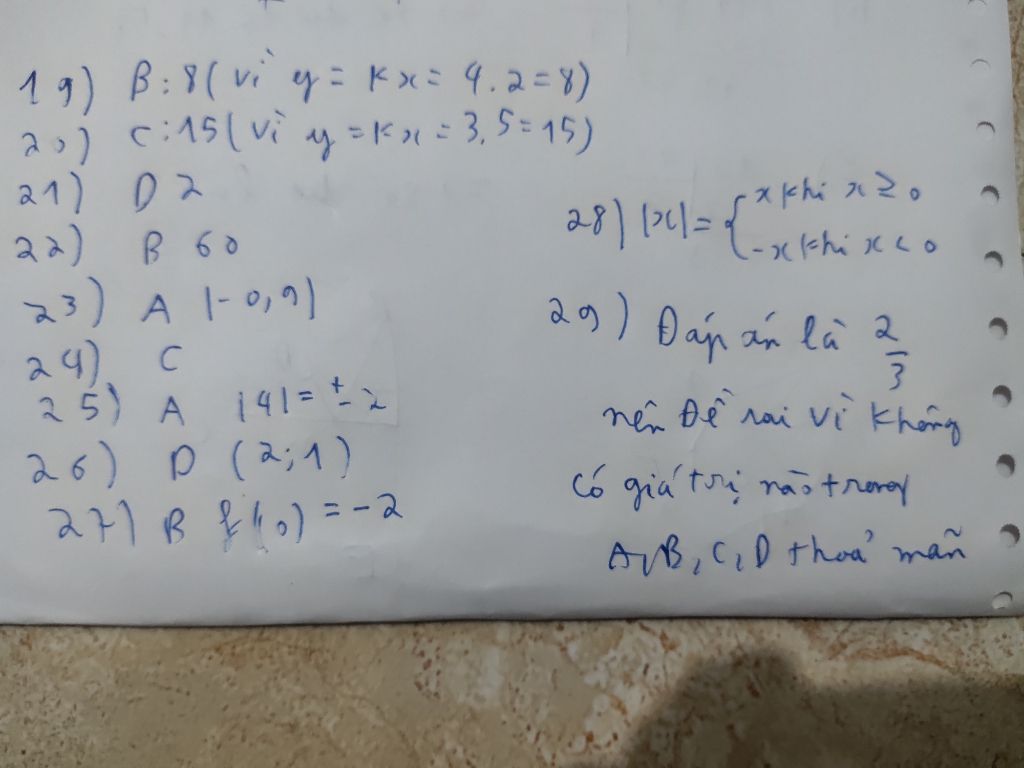 19) B: 8 (vì y = kx = 4.2 = 8)
20) C: 15 (vì y = kx = 3.5 = 15)
21) D 2
22) B 60
23) A |-0,9|
24) C
25) A |4| = ± 2
26) D (2; 1)
27) B f(0) = -2
28) |x| = { x khi x ≥ 0
-x khi x < 0
29) Đáp án là 2/3
nên Đề sai vì không
có giá trị nào trong
A, B, C, D thoả mãn